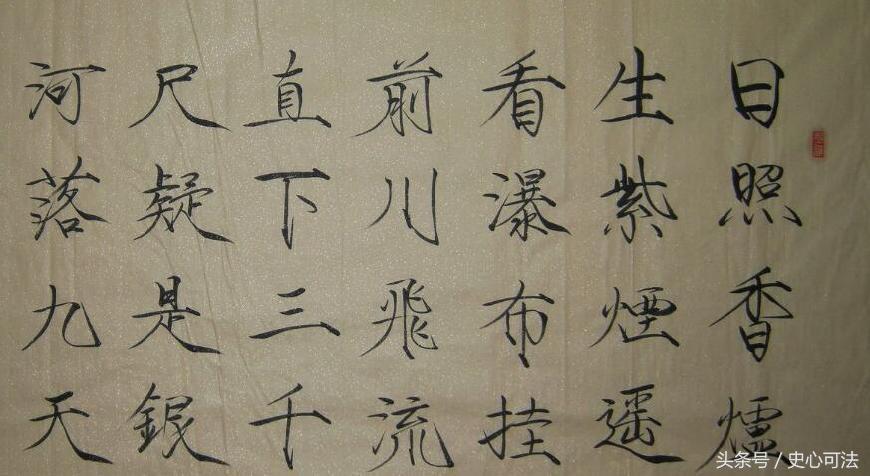 日照香爐
生紫煙遥
看瀑布挂
前川飛流
直下三千
尺疑是銀
河落九天
头条号 / 史心可法